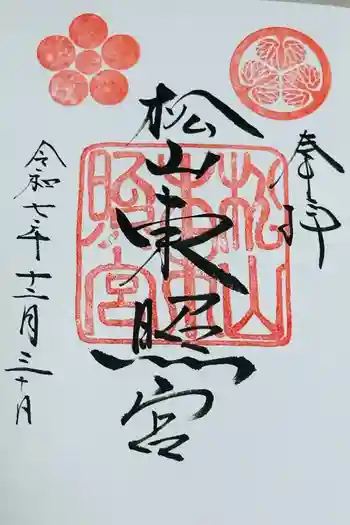 奉拝
松山東照宮
令和七年十二月三十日
松山
東
照宮